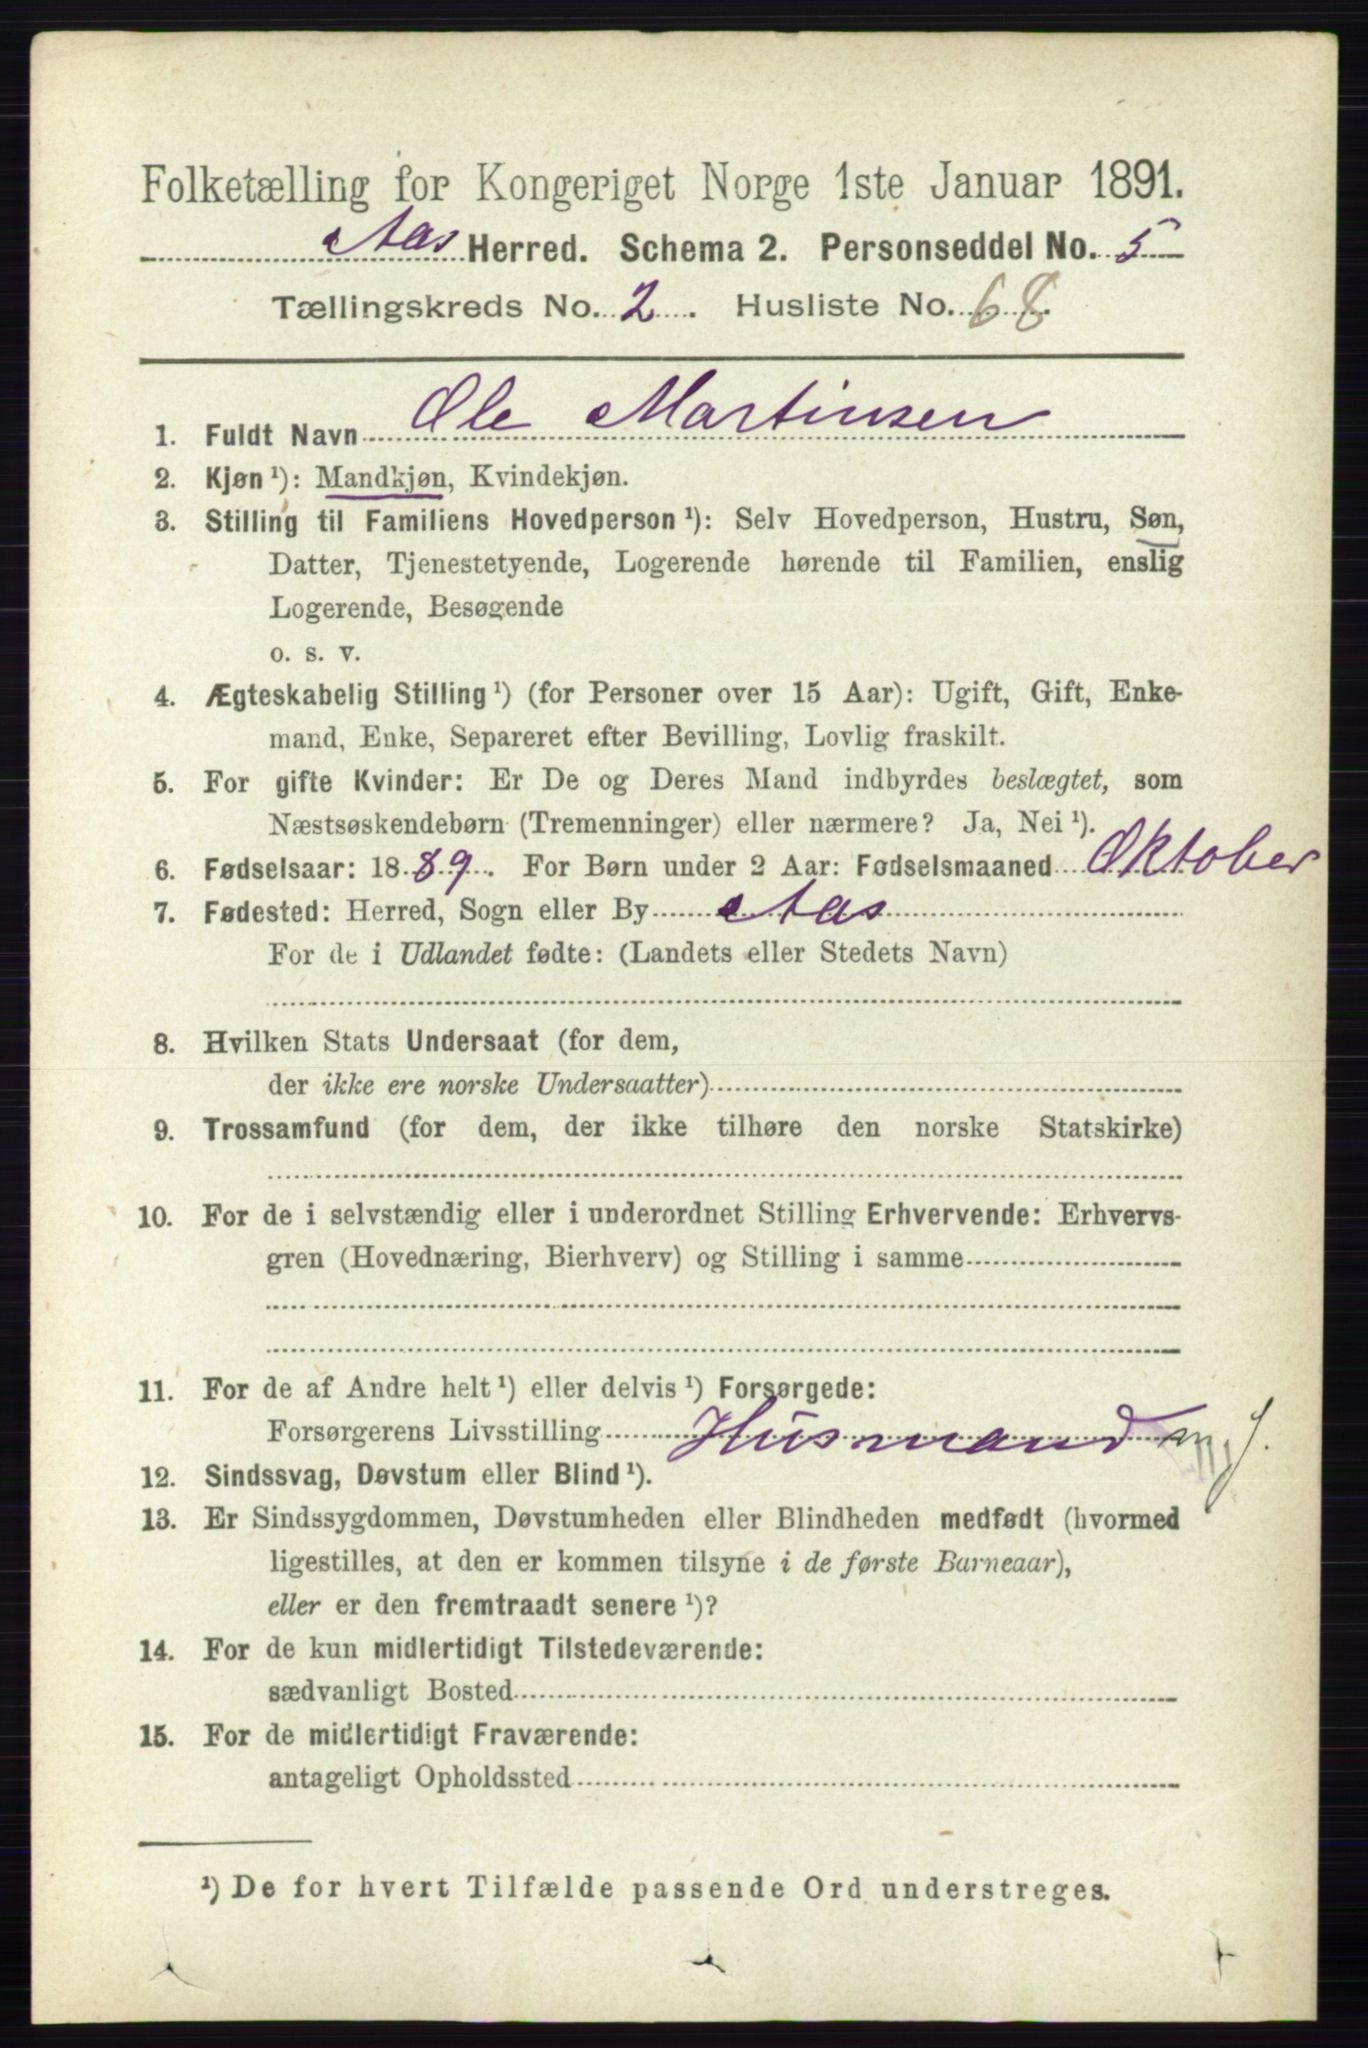 Folketælling for Kongeriget Norge 1ste Januar 1891.
Aas Herred. Schema 2. Personseddel No. 5
Tællingskreds No. 2. Husliste No. 68.
1. Fuldt Navn Ole Martinsen
2. Kjøn¹): Mandkjøn, Kvindekjøn.
3. Stilling til Familiens Hovedperson¹): Selv Hovedperson, Hustru, Søn,
Datter, Tjenestetyende, Logerende hørende til Familien, enslig
Logerende, Besøgende
o. s. v.
4. Ægteskabelig Stilling¹) (for Personer over 15 Aar): Ugift, Gift, Enke-
mand, Enke, Separeret efter Bevilling, Lovlig fraskilt.
5. For gifte Kvinder: Er De og Deres Mand indbyrdes beslægtet, som
Næstsøskendebørn (Tremenninger) eller nærmere? Ja, Nei¹).
6. Fødselsaar: 1889. For Børn under 2 Aar: Fødselsmaaned Oktober
7. Fødested: Herred, Sogn eller By Aas
For de i Udlandet fødte: (Landets eller Stedets Navn)
8. Hvilken Stats Undersaat (for dem,
der ikke ere norske Undersaatter)
9. Trossamfund (for dem, der ikke tilhøre den norske Statskirke)
10. For de i selvstændig eller i underordnet Stilling Erhvervende: Erhvervs-
gren (Hovednæring, Bierhverv) og Stilling i samme
11. For de af Andre helt¹) eller delvis¹) Forsørgede:
Forsørgerens Livsstilling Husmand m. J.
12. Sindssvag, Døvstum eller Blind¹).
13. Er Sindssygdommen, Døvstumheden eller Blindheden medfødt (hvormed
ligestilles, at den er kommen tilsyne i de første Barneaar),
eller er den fremtraadt senere¹)?
14. For de kun midlertidigt Tilstedeværende:
sædvanligt Bosted
15. For de midlertidigt Fraværende:
antageligt Opholdssted
¹) De for hvert Tilfælde passende Ord understreges.